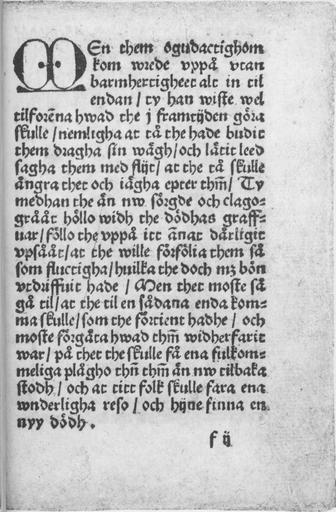 MEn them ogudactighom
kom wrede vppå vtan
barmhertigheet alt in til
endan / ty han wiste wel
tilforēna hwad the j framtijden göra
skulle / nemligha at tå the hade budit
them dragha sin wägh / och lätit leed
sagha them med flijt / at the tå skulle
ångra thet och iägha epter thm̄ / Ty
medhan the än nw sörgde och clago-
grååt höllo widh the dödhas graff-
uar / föllo the vppå itt ānat dårligit
vpsååt / at the wille förfölia them så
som fluctigha / huilka the doch mz bön
vtdriffuit hade / Men thet moste så
gå til / at the til en sådana enda kom-
ma skulle / som the förtient hadhe / och
moste förgäta hwad thm̄ widherfarit
war / på thet the skulle få ena fulkom-
meliga plågho thn̄ thm̄ än nw tilbaka
stodh / och at titt folk skulle fara ena
wnderligha reso / och hijne finna en
nyy dödh.
f ij